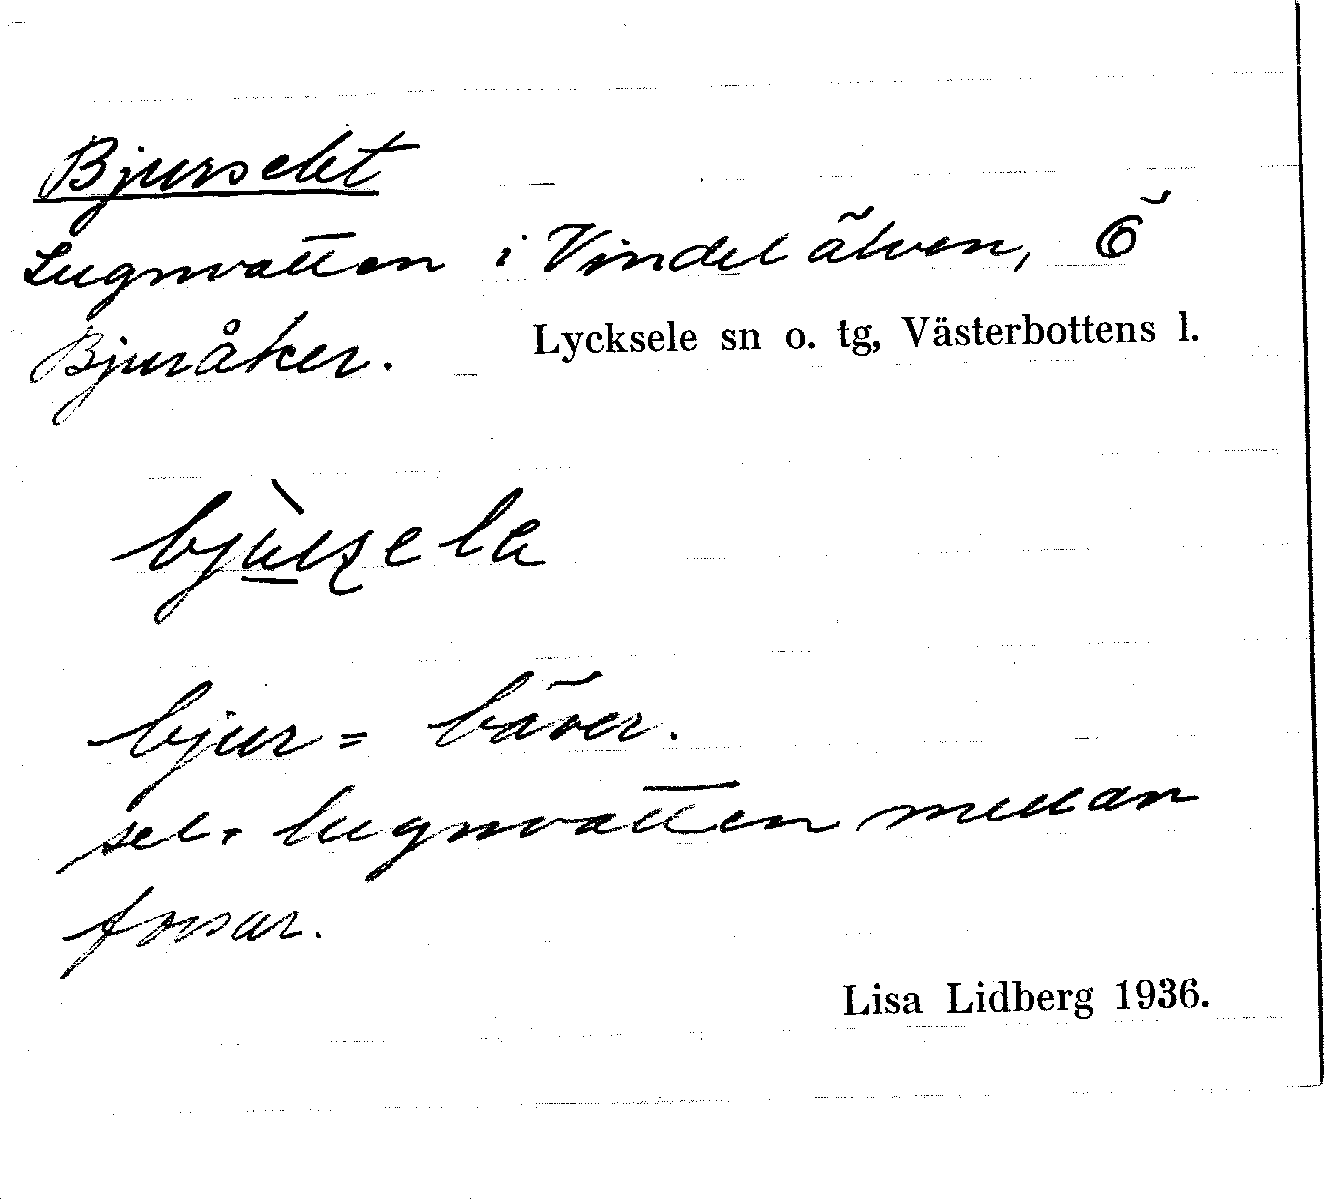 Bjurselet
Lugnvatten i Vindelälven, Ö
Bjuråker. Lycksele sn o. tg, Västerbottens l.
bjùrsela
bjur = bäver.
sel = lugnvatten mellan
forsar.
Lisa Lidberg 1936.